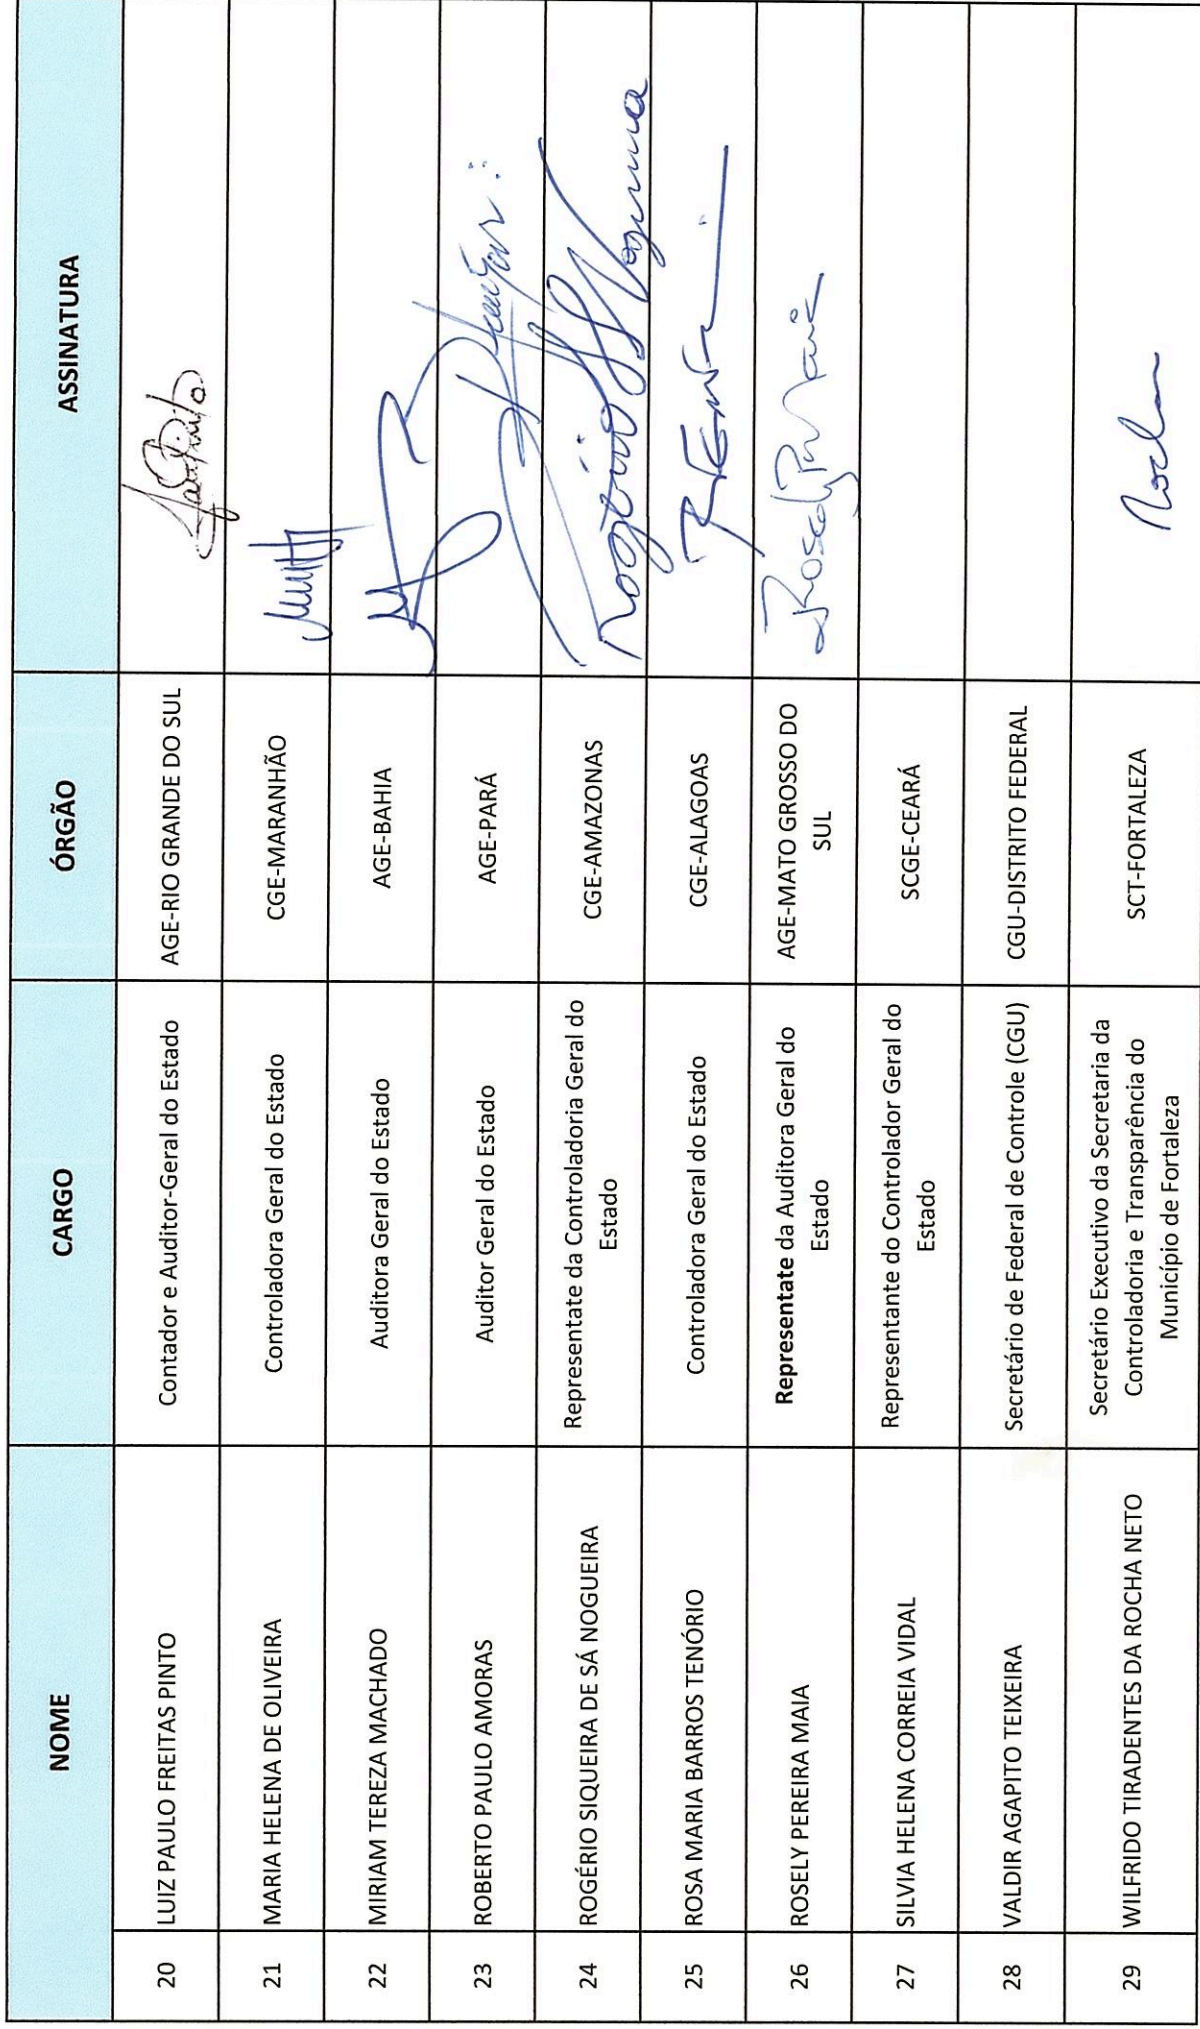 NOME CARGO ÓRGÃO ASSINATURA
20 LUIZ PAULO FREITAS PINTO Contador e Auditor-Geral do Estado AGE-RIO GRANDE DO SUL
21 MARIA HELENA DE OLIVEIRA Controladora Geral do Estado CGE-MARANHÃO
22 MIRIAM TEREZA MACHADO Auditora Geral do Estado AGE-BAHIA
23 ROBERTO PAULO AMORAS Auditor Geral do Estado AGE-PARÁ
24 ROGÉRIO SIQUEIRA DE SÁ NOGUEIRA Represente da Controladoria Geral do
Estado CGE-AMAZONAS Rogério
25 ROSA MARIA BARROS TENÓRIO Controladora Geral do Estado CGE-ALAGOAS
26 ROSELY PEREIRA MAIA Representate da Auditora Geral do
Estado AGE-MATO GROSSO DO
SUL
27 SILVIA HELENA CORREIA VIDAL Representante do Controlador Geral do
Estado SCGE-CEARÁ
28 VALDIR AGAPITO TEIXEIRA Secretário de Federal de Controle (CGU) CGU-DISTRITO FEDERAL
29 WILFRIDO TIRADENTES DA ROCHA NETO Secretário Executivo da Secretaria da
Controladoria e Transparência do
Município de Fortaleza SCT-FORTALEZA